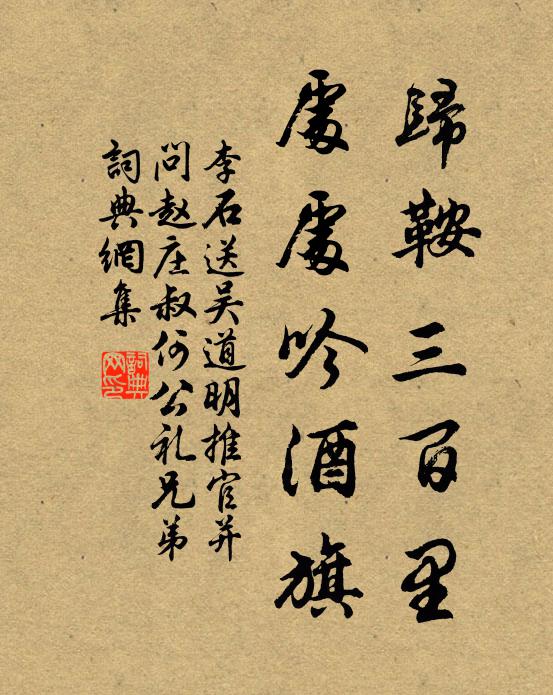 歸鞍三百里
處處吟酒旗
李石送吴道明推官并
问赵庄叔何公礼兄弟
詞典網集
詞典
网印